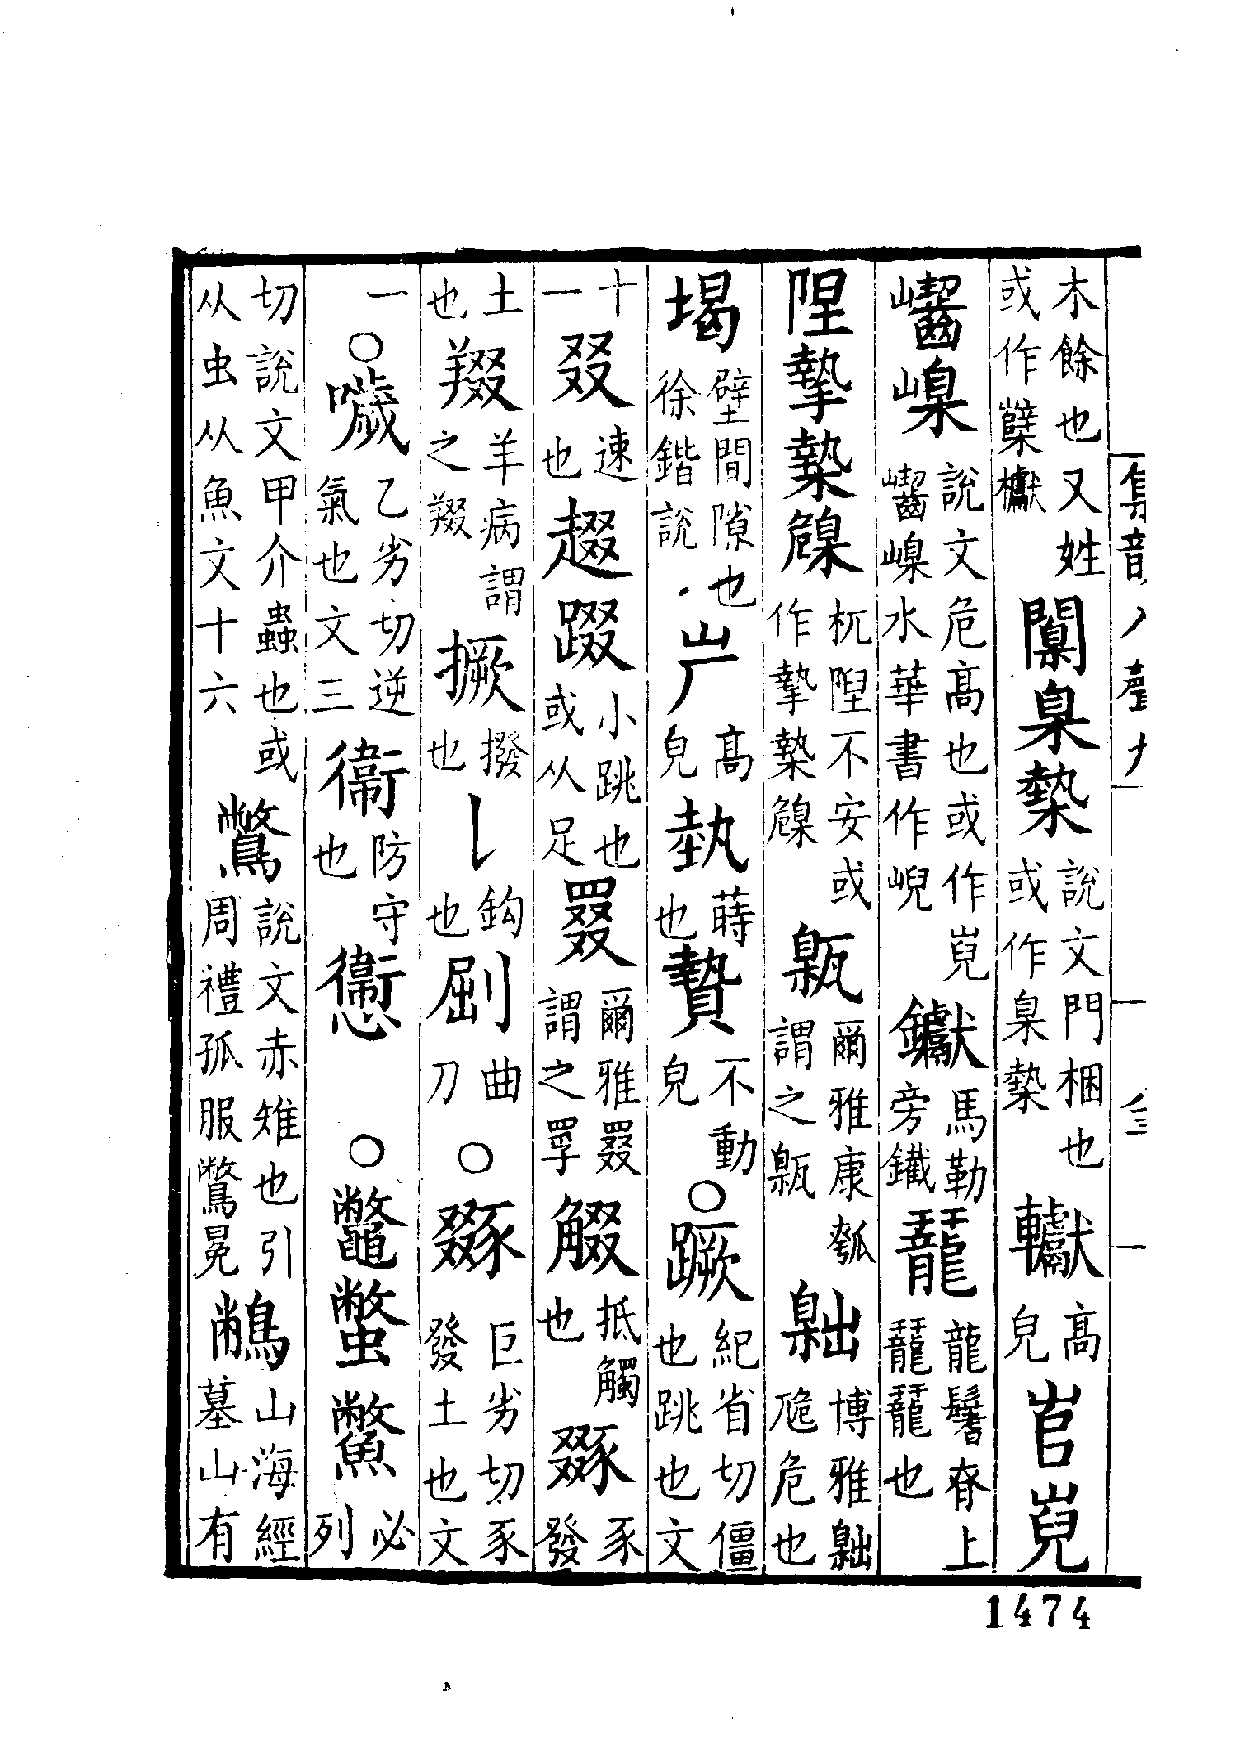 木餘也又姓或作櫱㰚闑臬槷說文門梱也或作臬槷轥高皃㟁𡸣
巕嵲說文危高也或作𡸣巕嵲水華書作崥钀馬勒旁鐵龓龍鬐脊上龓龓也
隉摯槷臲杌隉不安或作摯槷臲甈爾雅康瓠謂之甈𦤞博雅𦤞卼危也
堨壁間隙也徐鍇說屵高皃蓻蒔也贄不動皃○蹶紀省切僵也跳也文
十一叕速也趢踱小跳也或从足罬爾雅罬謂之罦觼抵觸也𧱫豕發
土也羺羊病謂之羺撅撥也亅鈎也剧曲刀○𧱫巨劣切豕發土也文
一○噦乙劣切逆氣也文三衞防守也㦣○鼈蟞鱉必列
切說文甲介蟲也或从虫从魚文十六鷩說文赤雉也引周禮孤服鷩冕𪁺山海經墓山有
集韻入聲九
1474